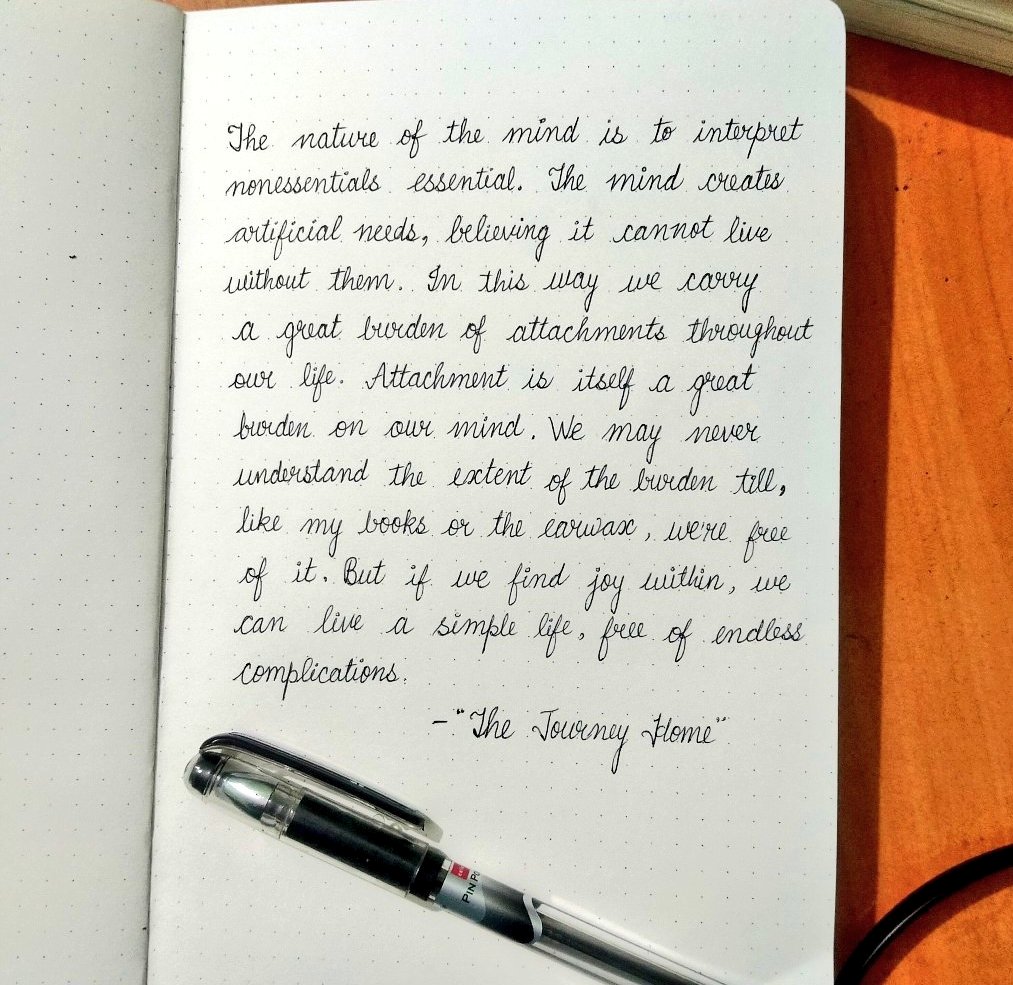 The nature of the mind is to interpret
nonessentials essential. The mind creates
artificial needs, believing it cannot live
without them. In this way we carry
a great burden of attachments throughout
our life. Attachment is itself a great
burden on our mind. We may never
understand the extent of the burden till,
like my books or the earwax, we're free
of it. But if we find joy within, we
can live a simple life, free of endless
complications.
-"The Journey Home"
PIN